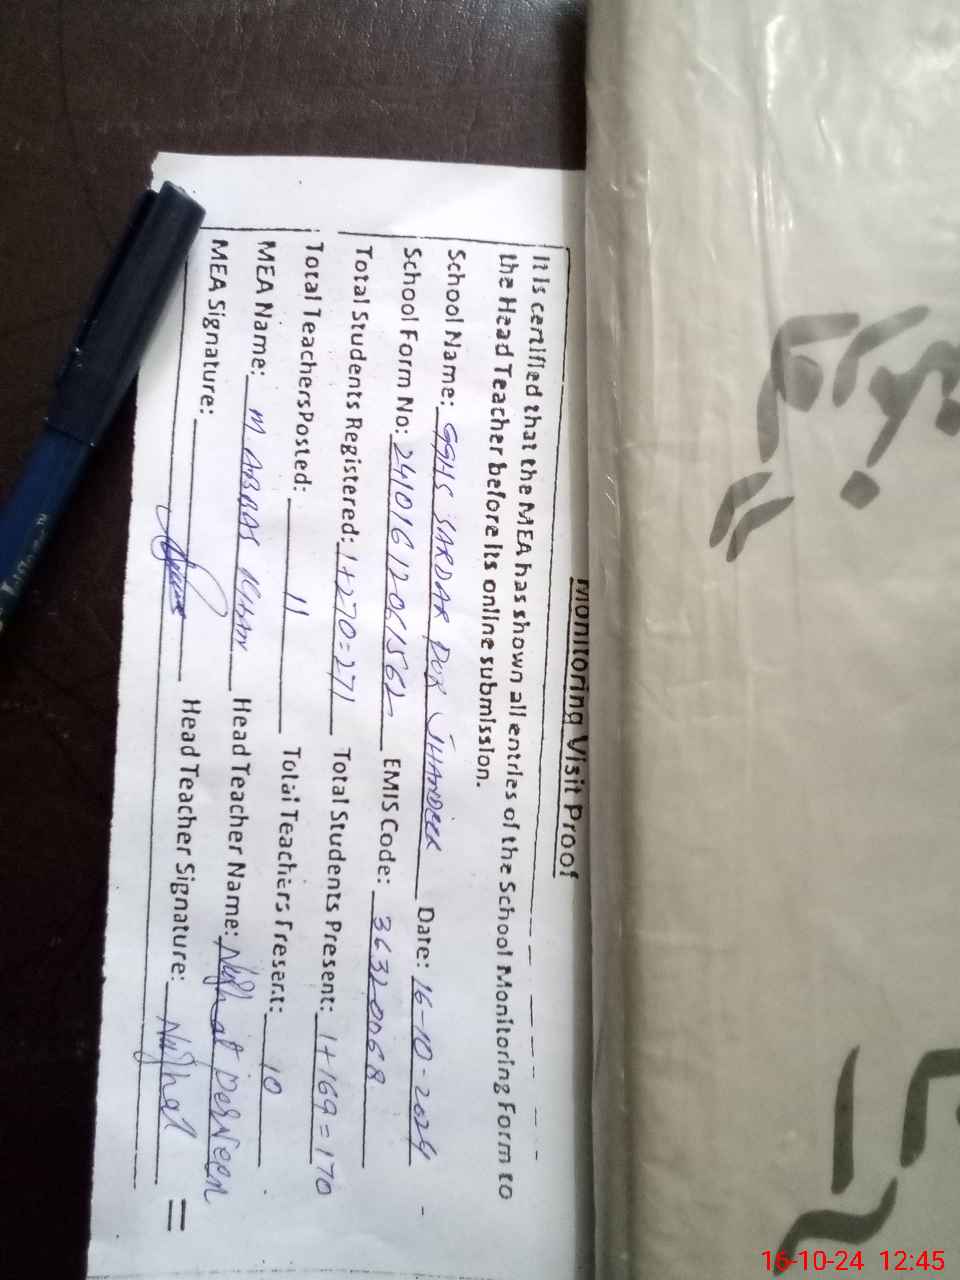 Monitoring Visit Proof
It is certified that the MEA has shown all entries of the School Monitoring Form to
the Head Teacher before its online submission.
School Name: GGHS SARDAR PUR JHANDEER Date: 16-10-2024
School Form No: 24101612061562 EMIS Code: 36320068
Total Students Registered: 1+270=271 Total Students Present: 1+169=170
Total Teachers Posted: 11 Total Teachers Present: 10
MEA Name: M. ABBAS KHAN Head Teacher Name: Nighat Perveen
MEA Signature: Head Teacher Signature: Nighat
16-10-24 12:45